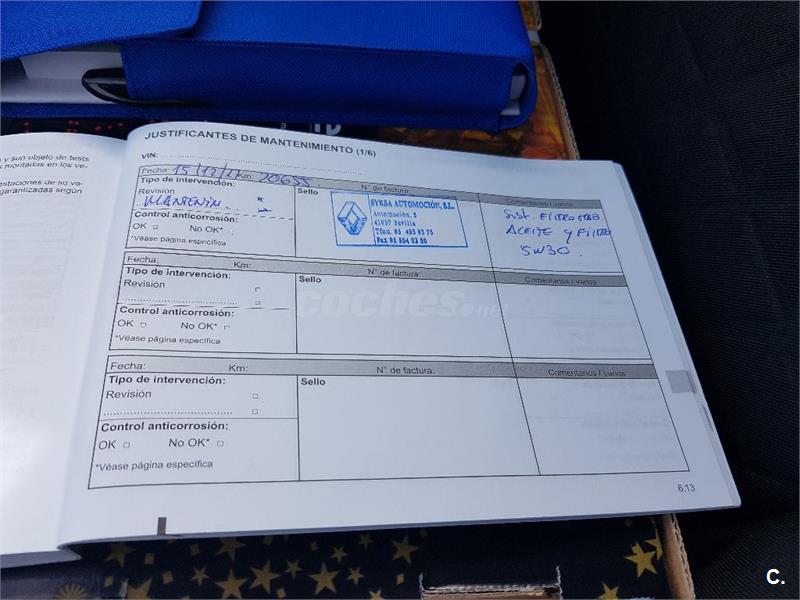 y son objeto de tests
montadas en los ve-
staciones de su ve-
garantizadas según
JUSTIFICANTES DE MANTENIMIENTO (1/6)
VIN:
Fecha: 15/12/21 Km: 20655
N° de factura:
Comentarios / varios
Tipo de intervención:
Revisión
MANTENIM.
Control anticorrosión:
OK □ No OK*
*Véase página específica
Sello
SYRSA AUTOMOCIÓN, S.L.
Automoción, 5
41007 Sevilla
Tfno. 95
Fax 95
Sust. FILTRO
ACEITE y FILTRO
5W30
Fecha: Km: N° de factura: Comentarios / varios
Tipo de intervención:
Revisión □
□
Control anticorrosión:
OK □ No OK* □
*Véase página específica
Sello
coches.net
Fecha: Km: N° de factura: Comentarios / varios
Tipo de intervención:
Revisión □
□
Control anticorrosión:
OK □ No OK* □
*Véase página específica
Sello
6.13
C.